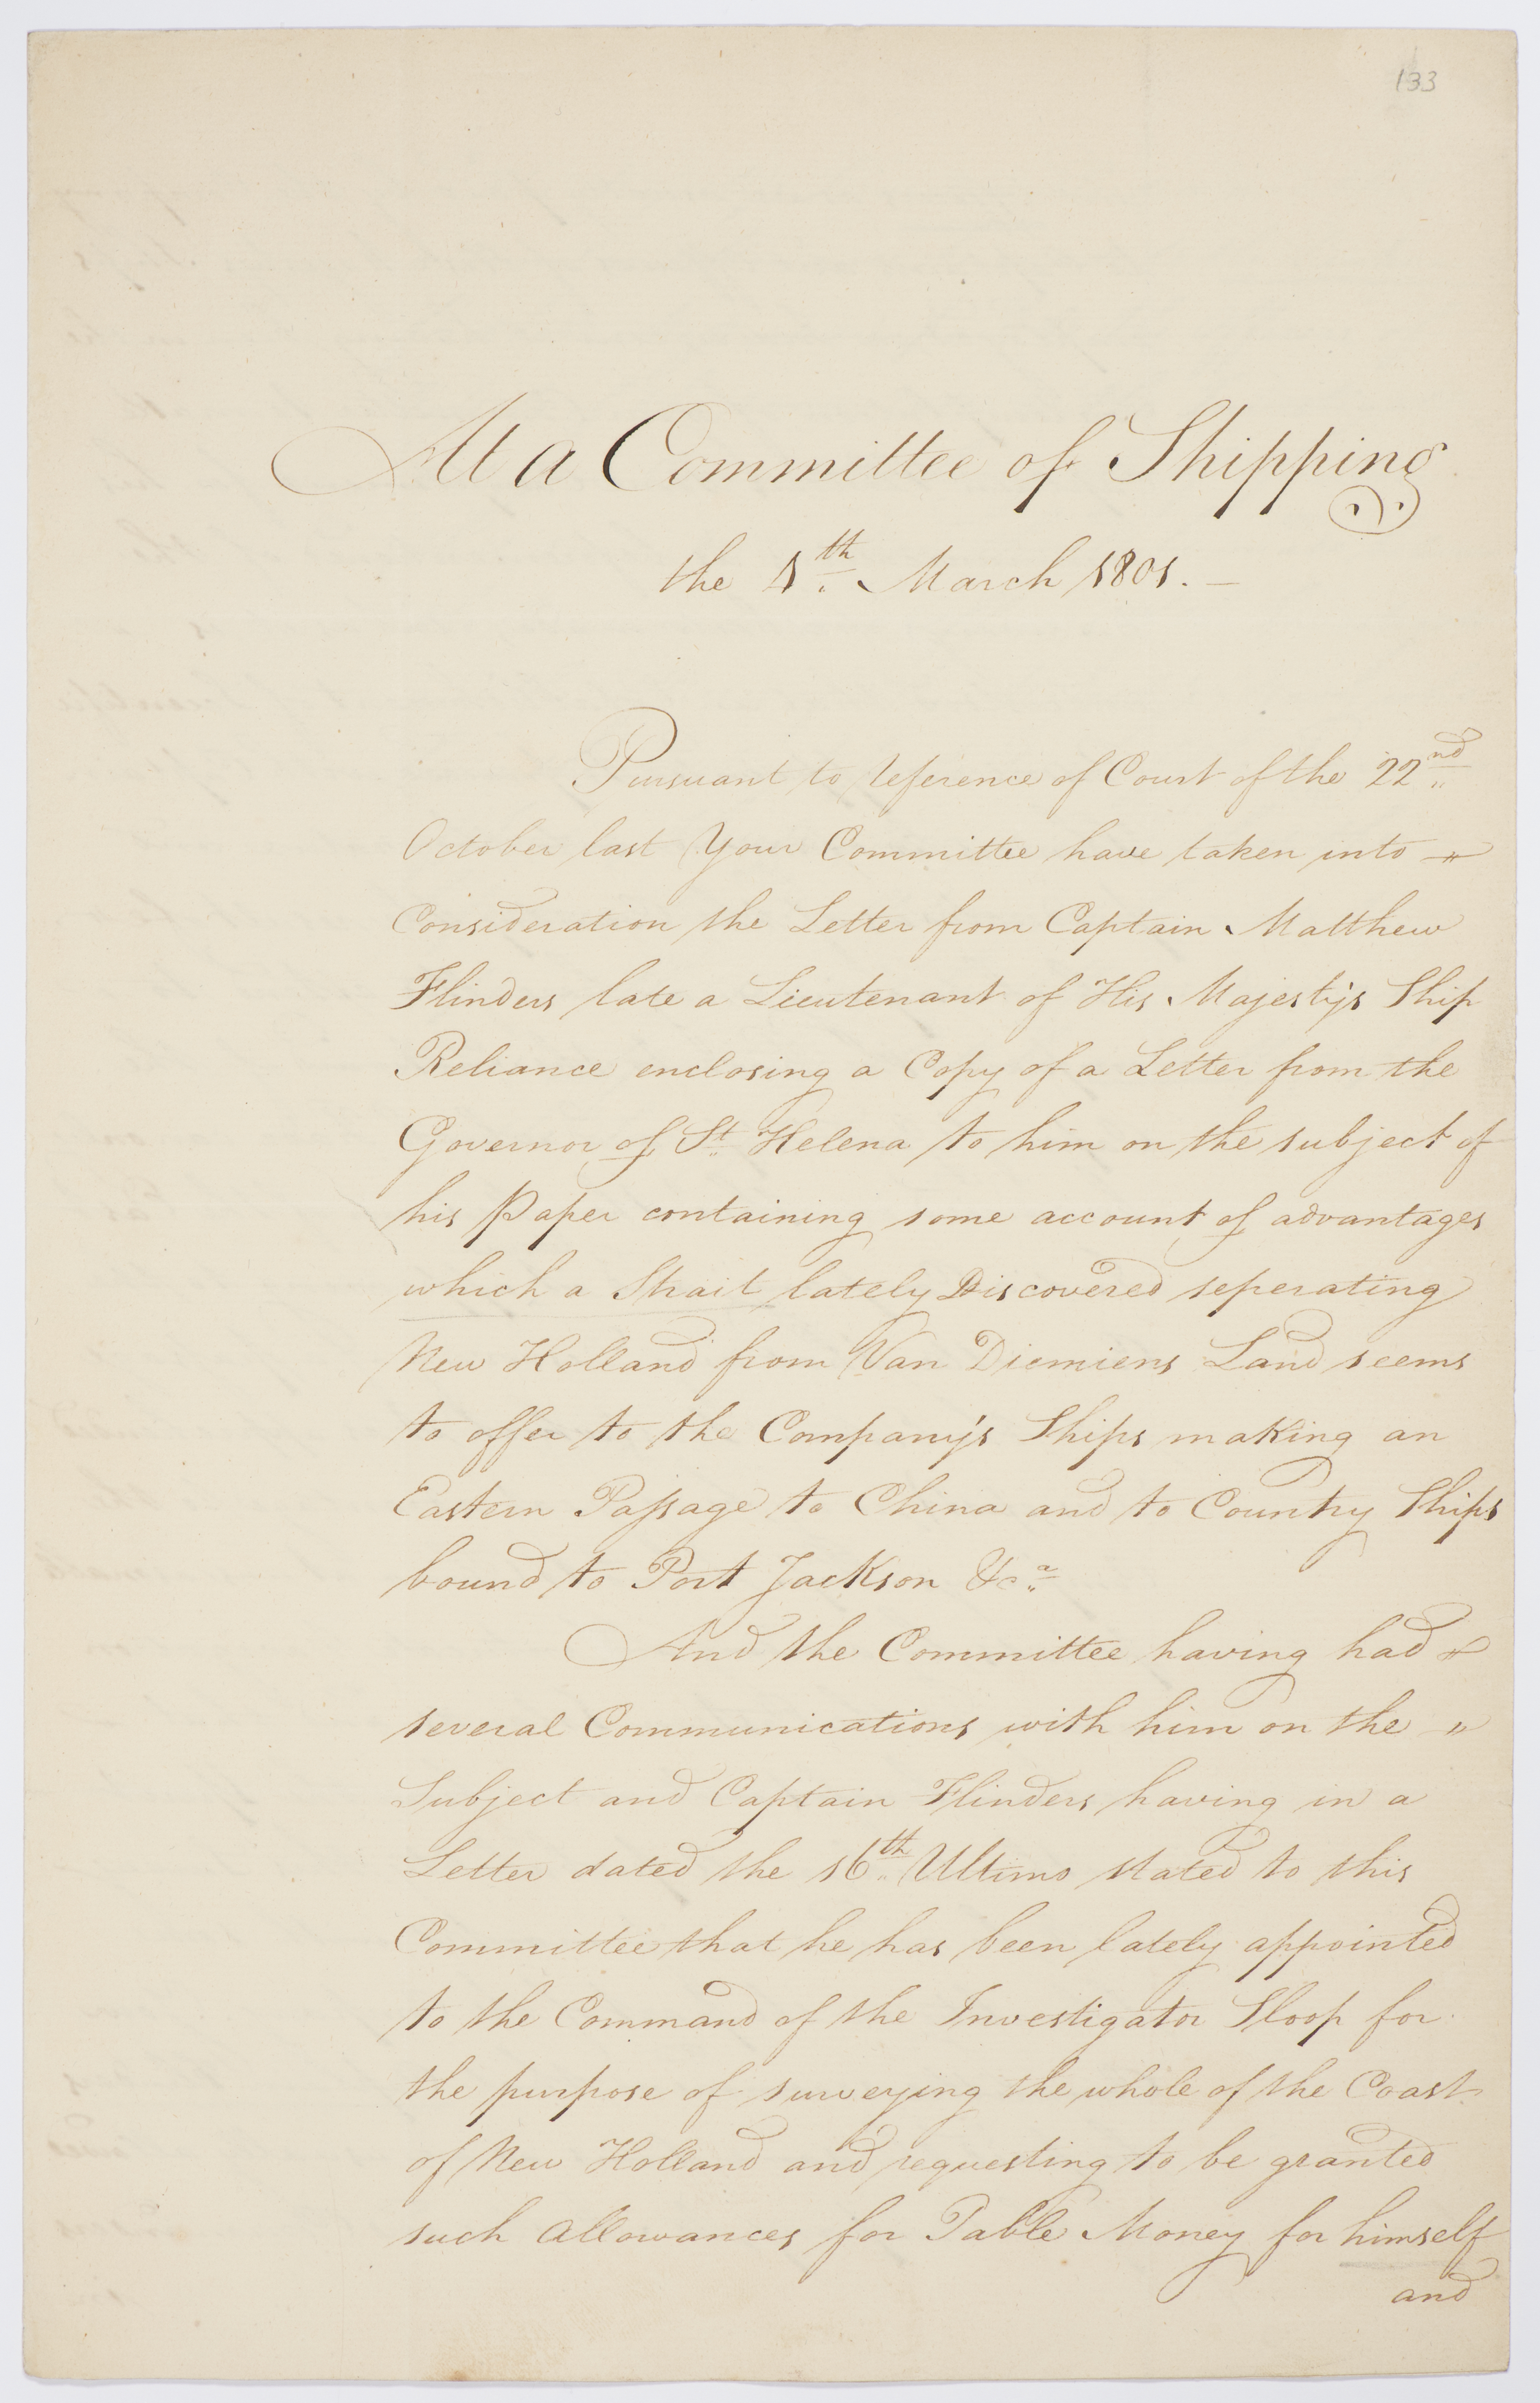 133
At a Committee of Shipping
the 4th March 1801. –
Pursuant to reference of Court of the 22nd
October last Your Committee have taken into
Consideration the Letter from Captain Matthew
Flinders late a Lieutenant of His Majesty's Ship
Reliance enclosing a Copy of a Letter from the
Governor of St Helena to him on the subject of
his Paper containing some account of advantages
which a Strait lately Discovered seperating
New Holland from Van Diemiens Land seems
to offer to the Company's Ships making an
Eastern Passage to China and to Country Ships
bound to Port Jackson &ca
And the Committee having had
several Communications with him on the
Subject and Captain Flinders having in a
Letter dated the 16th Ultimo stated to this
Committee that he has been lately appointed
to the Command of the Investigator Sloop for
the purpose of surveying the whole of the Coast
of New Holland and requesting to be granted
such allowances for Table Money for himself
and